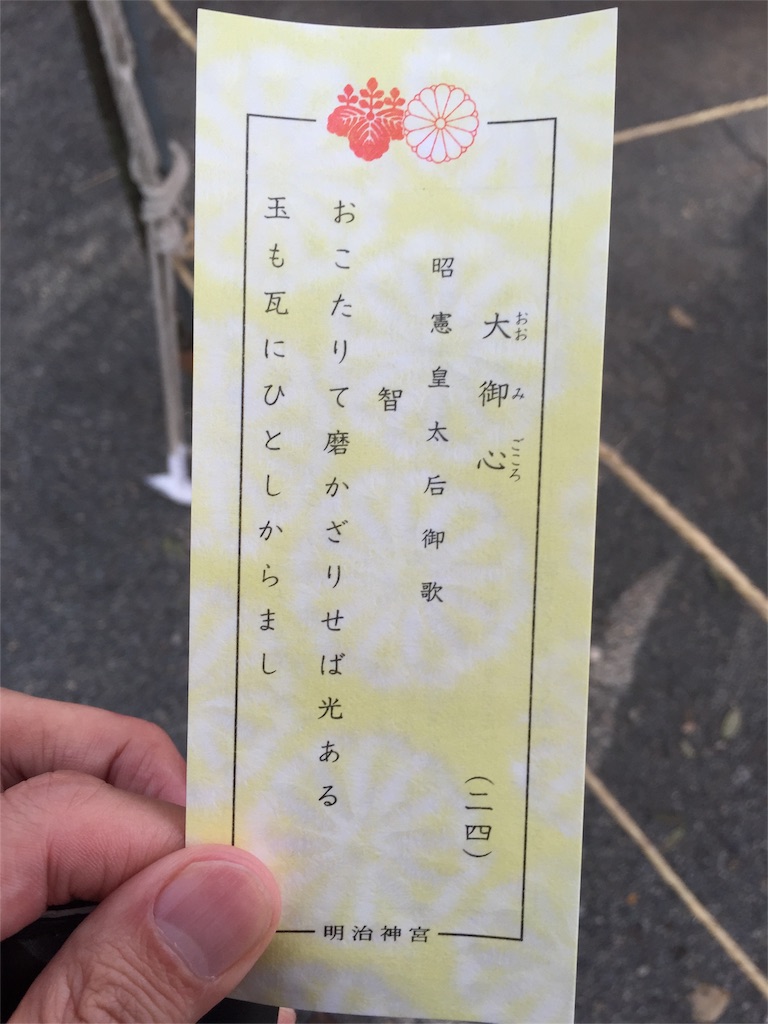 大御心
おおみごころ
(二四)
昭憲皇太后御歌
智
おこたりて磨かざりせば光ある
玉も瓦にひとしからまし
明治神宮